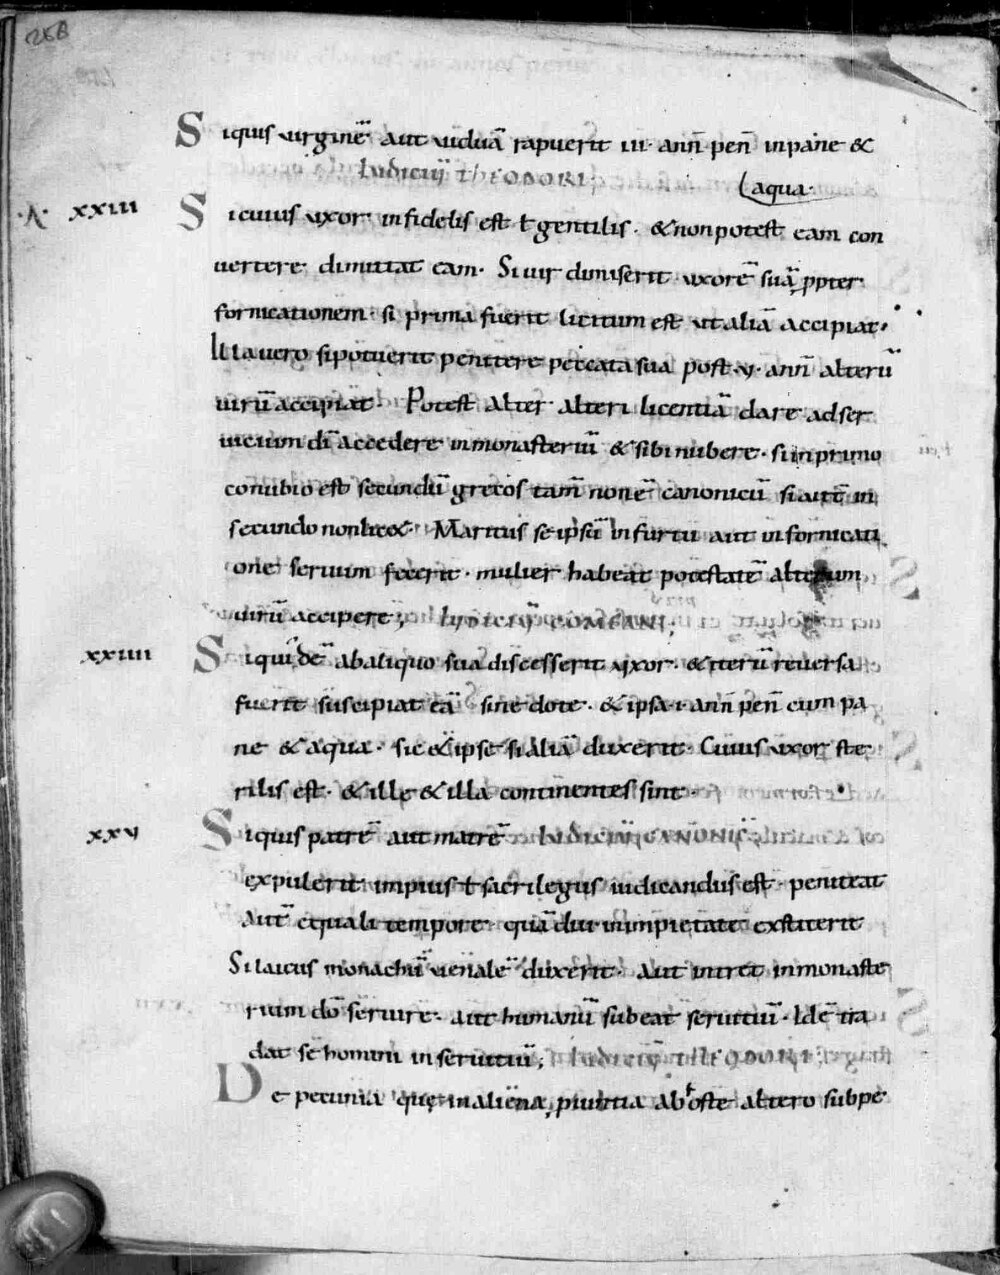 268
Siquis uirginē aut uiduā rapuerit iii· ann̄ pen̄ inpane &
Iudiciū THEODORI
aqua·
·A· xxiii Sicuius uxor infidelis est ł gentilis · & non potest eam con
uertere dimittat eam · Si uir dimiserit uxorē suā ꝓpter
fornicationem · si prima fuerit licitum est ut aliā accipiat·
Illa uero sipotuerit penitere peccata sua post ·v· ann̄ alterū
uirū accipiat · Potest alter alteri licentiā dare adser
uicium dī accedere inmonasteriū & sibi nubere · siinprimo
conubio est secundū grecos tam̄ non ē canonicū si aut̄ in
secundo non lic& · Maritus seipsū infurtu aut infornicati
one seruum fecerit · mulier habeat potestatē alterum
uirū accipere; IUDICIŪ COMEANI;
xxiiii Siqui dē abaliquo sua discesserit uxor · & iterū reuersa
fuerit suscipiat eā sine dote · & ipsa ·i· ann̄ pen̄ cum pa
ne & aqua · sic & ipse si aliā duxerit · Cuius uxor ste
rilis est · & ille & illa continentes sint ·
xxv Siquis patrē aut matrē Iudiciū CANONIS;
expulerit impius ł sacrilegus iudicandus est · peniteat
aut̄ equali tempore quādiu inimpietate exstiterit
Si laicus monachū uenalē duxerit · Aut intret inmonaste
rium dō seruire · aut humanū subeat seruitiū · Idē tra
dat se homini in seruitiū; Iudiciū THEODORI;
De pecunia que inaliena ꝓuintia ab hoste altero supe